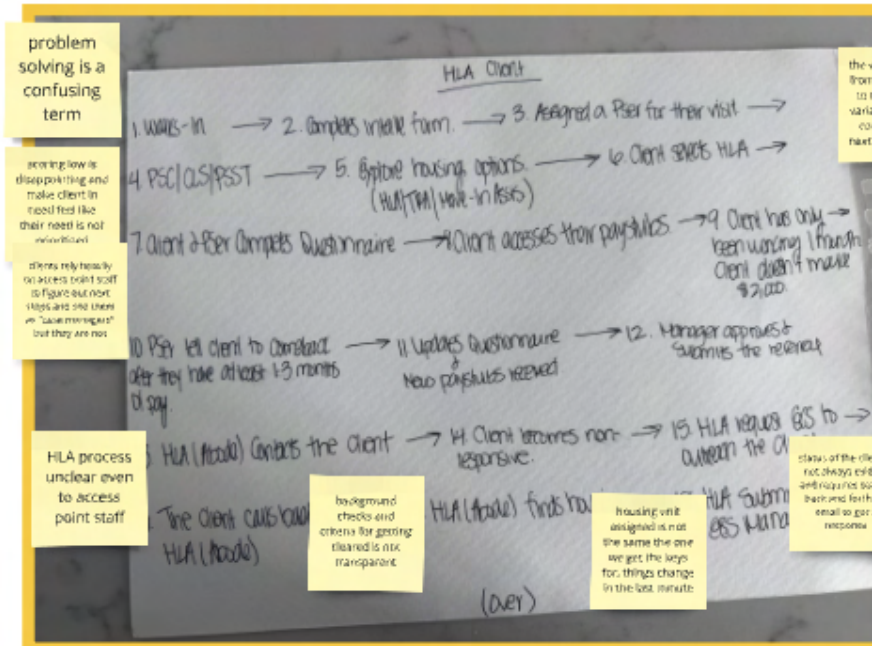 problem
solving is a
confusing
term
scoring low is
disappointing and
make client in
need feel like
their need is not
prioritized
clients rely heavily
on access point staff
to figure out next
steps and see them
as "case managers"
but they are not
HLA process
unclear even
to access
point staff
HLA Client
1. Walks-In → 2. Completes intake form. → 3. Assigned a PSer for their visit →
4. PSC/CLS/PSST → 5. Explore housing options. → 6. Client selects HLA →
(HLA/TRA/Move-In Assis)
7. Client & PSer Completes Questionnaire → 8. Client accesses their paystubs. → 9. Client has only →
been working 1 month
Client doesn't make
$2,000.
10. PSer tell client to comeback → 11. Updates Questionnaire → 12. Manager approves &
after they have at least 1-3 months
of pay.
New paystubs received
Submits the referral
HLA (Abode) Contacts the client → 14. Client becomes non- → 15. HLA request ES to →
responsive.
outreach the
The client calls
HLA (Abode)
HLA (Abode) finds
HLA
(over)
background
checks and
criteria for getting
cleared is not
transparent
housing unit
assigned is not
the same the one
we get the keys
for, things change
in the last minute
the
from
to
status of the
not always
and requires
back and forth
email to get
response